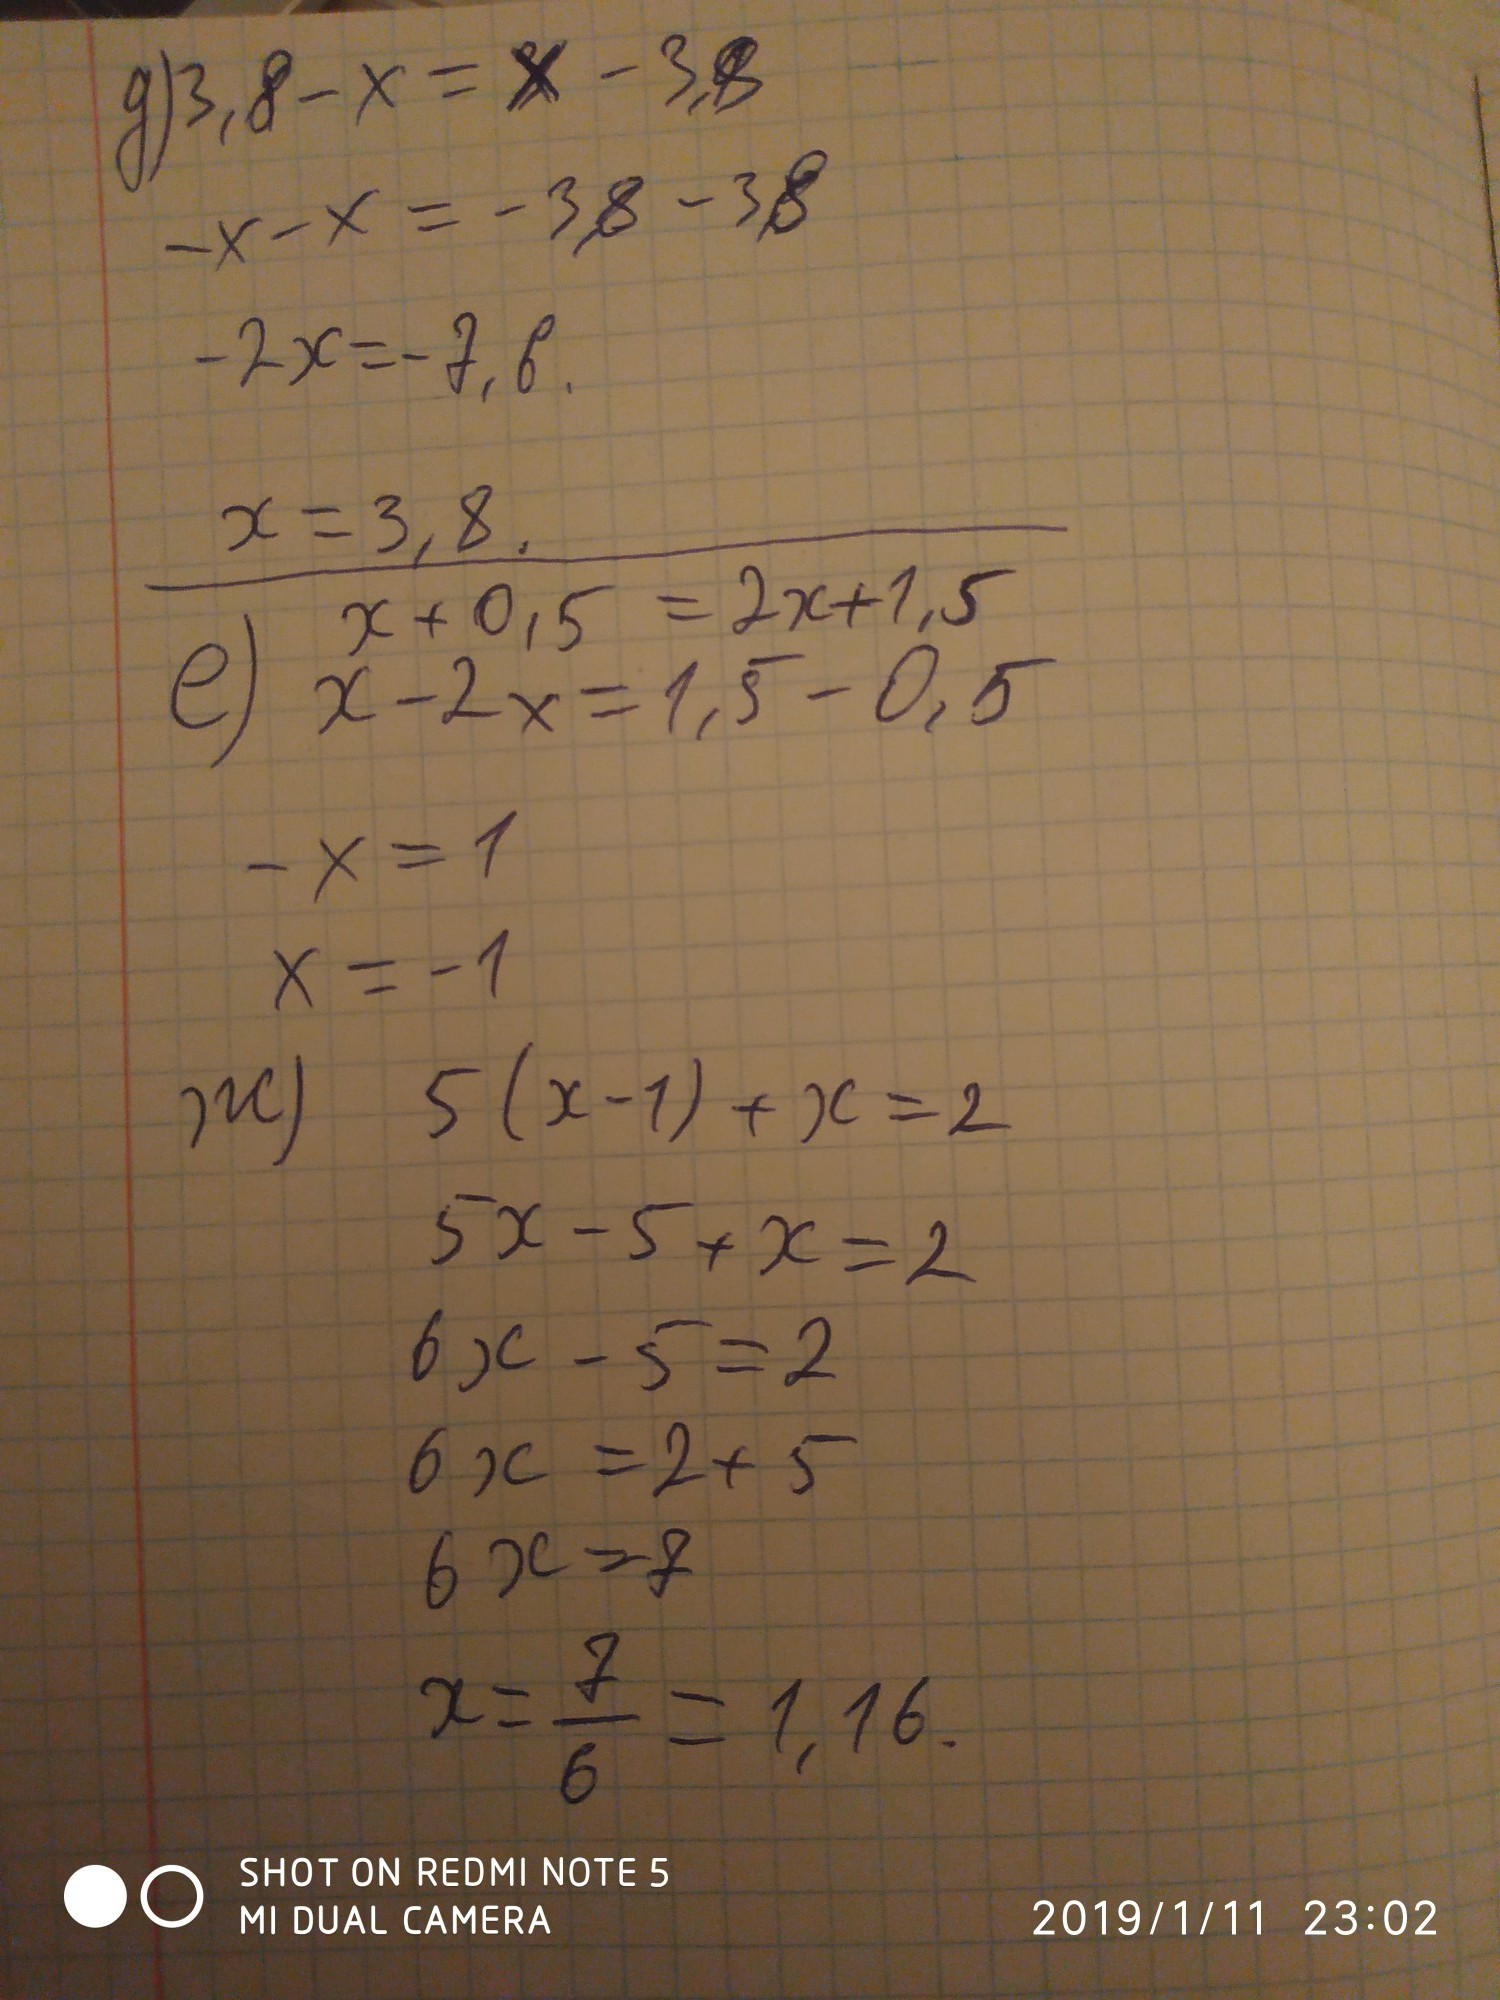 д) 3,8 - x = x - 3,8
-x - x = -3,8 - 3,8
-2x = -7,6.
x = 3,8.
x + 0,5 = 2x + 1,5
е) x - 2x = 1,5 - 0,5
-x = 1
x = -1
ж) 5(x-1) + x = 2
5x - 5 + x = 2
6x - 5 = 2
6x = 2 + 5
6x = 7
x = 7/6 = 1,16.
SHOT ON REDMI NOTE 5
MI DUAL CAMERA
2019/1/11 23:02